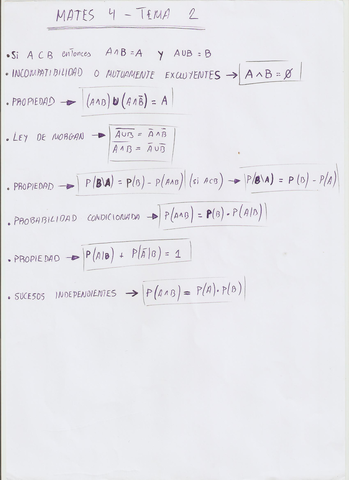 MATES 4 - TEMA 2
• Si A ⊂ B entonces A∧B = A y A∪B = B
• INCOMPATIBILIDAD O MUTUAMENTE EXCLUYENTES → A∧B = ∅
• PROPIEDAD → (A∧B) ∪ (A∧B̅) = A
• LEY DE MORGAN → A̅∪̅B̅ = A̅ ∧ B̅
A̅∧̅B̅ = A̅ ∪ B̅
• PROPIEDAD → P(B\A) = P(B) - P(A∧B) (si A⊂B) → P(B\A) = P(B) - P(A)
• PROBABILIDAD CONDICIONADA → P(A∧B) = P(B) · P(A|B)
• PROPIEDAD → P(A|B) + P(A̅|B) = 1
• SUCESOS INDEPENDIENTES → P(A∧B) = P(A) · P(B)